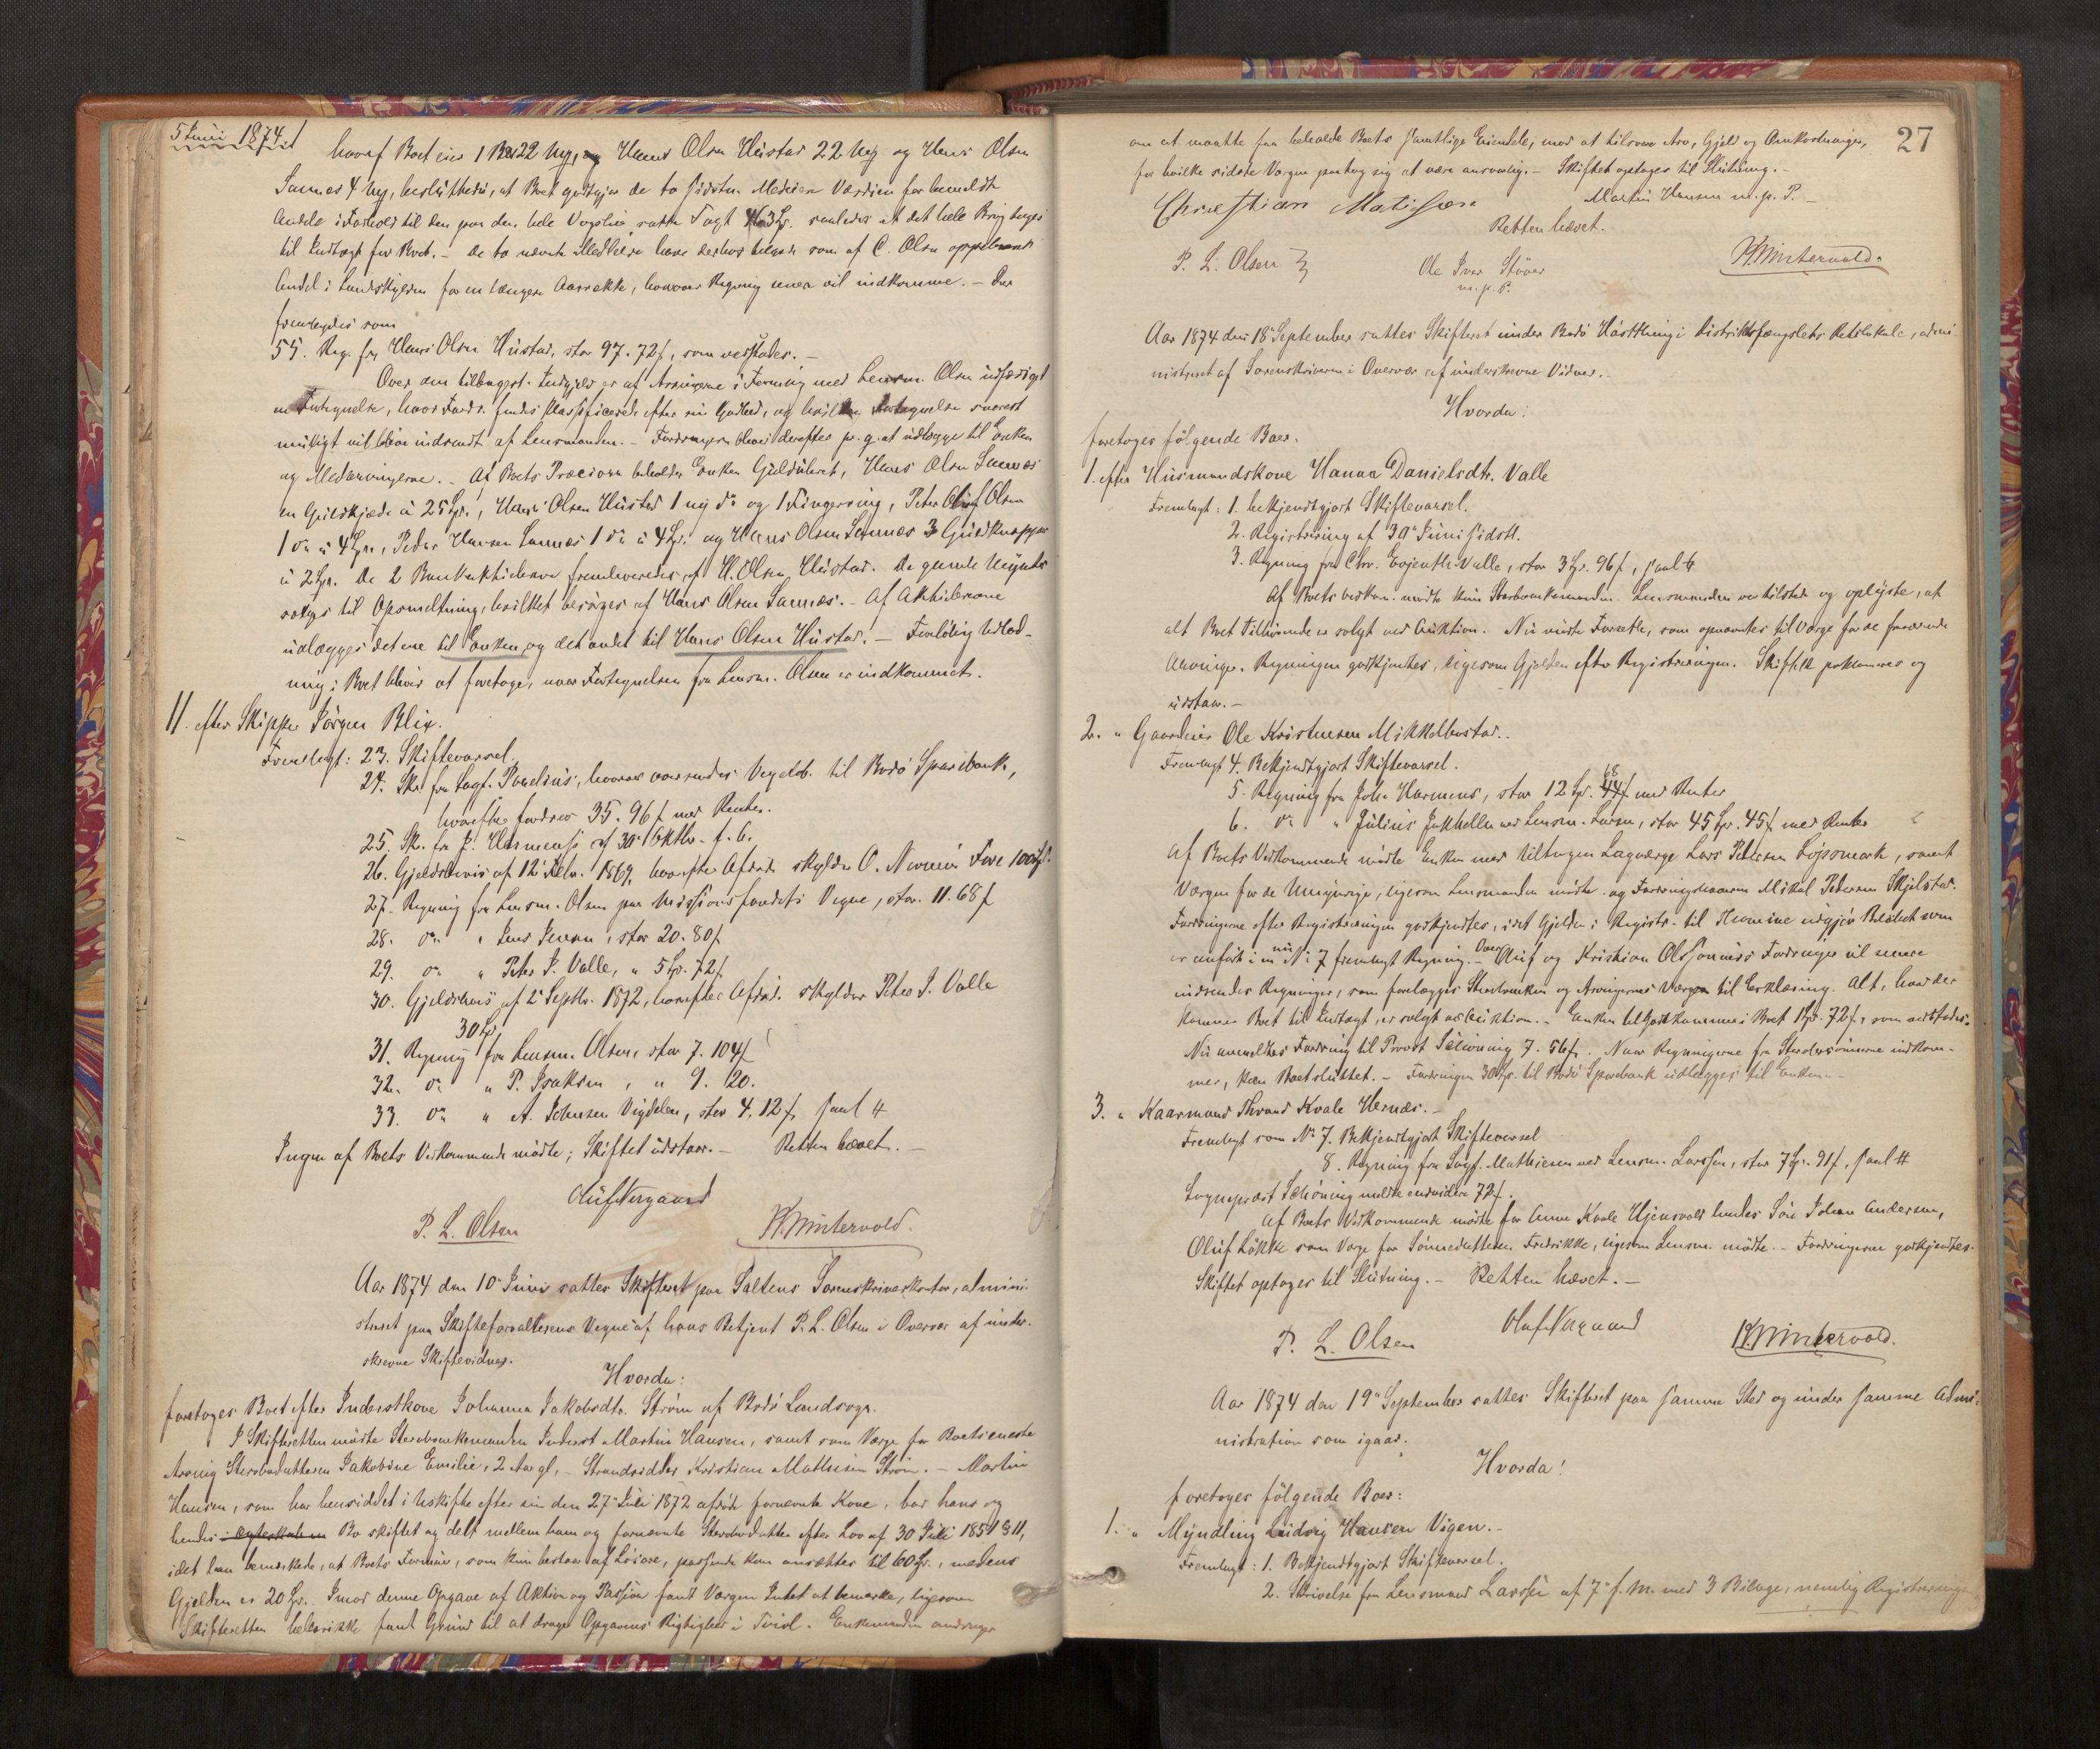 5 Juni 1874
hvoraf Boet eier 1 22 Mrk, og Hans Olsen Hustad 22 Mrk og Hans Olsen
Sannes 4 Mrk, besluttedes, at Boet godtgjør de to sidste Medeiere Værdien for bemeldte
Andele i Forhold til den paa den hele satte Taxt saaledes at det hele Brug tages
til Indtægt for Boet. – De to nævnte Medeiere have derhos som af C. Olsen oppebaaret
Andel i Landskylden for en længere Aarrække, hvorover Regning senere vil indkomme. – Der
fremlagdes som
55. Regn. fra Hans Olsen Hustad, stor 97. 72 f, som vedtoges. –
Over den tilbagest. Indgjeld er af Arvingerne i Forening med Lensm. Olsen udfærdiget
en Fortegnelse, hvor Fordr. findes klassificerede efter sin Godhed, og hvilken Fortegnelse snarest
muligt vil blive indsendt af Lensmanden. – Fordringerne bliver derefter p. q. at udlægge til Enken
og Medarvingerne. – Af Boets Præciosa beholder Enken Gulduhret, Hans Olsen Sannes
en Guldkjæde à 25 Spd., Hans Olsen Hustad 1 ny do og 1 Fingerring, Peter Oluf Olsen
1 do à 4 Spd., Peder Hansen Sannes 1 do à 4 Spd. og Hans Olsen Sannes 3 Guldknapper
à 2 Spd. De 2 Bankaktiebreve fremleveredes af H. Olsen Hustad. De gamle Mynter
sælges til Opsmeltning, hvilket besørges af Hans Olsen Sannes. – Af Aktiebrevene
udlægges det ene til Enken og det andet til Hans Olsen Hustad. – Foreløbig Udlod-
ning i Boet bliver at foretage, naar Fortegnelsen fra Lensm. Olsen er indkommet.
11. efter Skipper Jörgen Blix.
Fremlagt: 23. Skiftevarsel.
24. Skr. fra Sagf. Poulsius, hvorved oversendes til Bodö Sparebank,
hvorefter fordres 35. 96 f med Renter.
25. Sk. fra J. Harmens af 30 Oktbr. f. A.
26. Gjeldsbevis af 12 1869, hvorefter Afdøde skylder O. 100 Spd.
27. Regning fra Lensm. Olsen paa Missionsfondets Vegne, stor 11. 68 f
28. do " Jens Jensen, stor 20. 80 f
29. do " Peter J. Valle, " 5 Spd. 72 f
30. Gjeldsbevis af 2 Septbr. 1872, hvorefter Afdød. skylder Peter J. Valle
30 Spd.
31. Regning fra Lensm. Olsen, stor 7. 104 f
32. do " P. Isaksen, " 9. 20.
33. do " A. Johnsen Vigdelen, stor 4. 12 f, saml #
Ingen af Boets Vedkommende mödte; Skiftet udstaar. – Retten hævet. –
Oluf Nergaard
P. L. Olsen H. Mintervold.
Aar 1874 den 10 Juni sattes Skifteret paa Saltens Sorenskriverkontor, admini-
streret paa Skifteforvalterens Vegne af hans Betjent P. L. Olsen i Overvær af under-
skrevne Skiftevidner.
Hvorda:
foretoges Boet efter Inderstkone Johanna Jakobsdtr. Ström af Bodö Landsogn.
I Skifteretten mödte Stervboenkemanden Inderst Martin Hansen, samt som Værge for Boets eneste
Arving Stervbodatteren Jakobine Emilie, 2 Aar gl., – Strandsidder Kristian Mathisen Ström. – Martin
Hansen, som har hensiddet i Uskifte efter sin den 27 Juli 1872 afdöde fornævnte Kone, har hans og
hendes Bo skiftet og delt mellem ham og fornævnte Stervbodatter efter Lov af 30 Juli 1851 § 11,
idet han bemærkede, at Boets Formue, som kun bestaar af Lösöre, passende kan ansættes til 60 Spd., medens
Gjelden er 20 Spd. Imod denne Opgave af Aktiva og Passiva fandt Værgen Intet at bemærke, ligesom
Skifteretten hellerikke fandt Grund til at drage Opgavens Rigtighed i Tvivl. Enkemanden androges
27
om at maatte faa beholde Boets samtlige Eiendele, mod at tilsvare Arv, Gjeld og Omkostninger,
for hvilke sidste Værgen paatog sig at være ansvarlig. – Skiftet optoges til Slutning. –
Chræstian Matissen Martin Hansen m. p. P. –
Retten hævet.
P. L. Olsen Ole Iver Stöver
m. p. P. H. Mintervold.
Aar 1874 den 18 September sattes Skifteret under Bodö Hösttthing i Distriktsfængslets Retslokale, admi-
nistreret af Sorenskriveren i Overvær af underskrevne Vidner.
Hvorda:
foretoges følgende Boer.
1. efter Husmandskone Hanna Danielsdtr. Valle
Fremlagt: 1. bekjendtgjort Skiftevarsel.
2. Registrering af 30 Juni sidstl.
3. Regning fra Chr. Evjenth Valle, stor 3 Spd. 96 f, saml #
Af Boets Vedkom. mødte kun Stervboenkemanden. Lensmanden var tilstede og oplyste, at
alt Boet Tilhørende er solgt ved Auktion. Nu mødte som opnævntes til Værge for de fraværende
Arvinger. Regningen godkjentes, ligesom Gjelden efter Registreringen. Skiftet og
udstaar. –
2. " Gaardeier Ole Kristensen Mikkelbostad..
Fremlagt 4. Bekjendtgjort Skiftevarsel.
5. Regning fra Joh. Harmens, stor 12 Spd. 68 f med Renter
6. do " Julius Jakhelln ved Lensm. Larsen, stor 45 Spd. 45 f med Renter
Af Boets Vedkommende mödte Enken med tiltagen Laugværge Lars Petersen Löpsmark, samt
Værgen for de Umyndige, ligesom Lensmanden mödte og Fordringshaveren Mikal Pedersen Skjelstad.
Fordringerne efter Registreringen godkjendtes, idet Gjelden i Registr. til Hermine udgjör Belöbet som
er anført i en nu No 7 fremlagt Regning. – Over Oluf og Kristian Olssönners Fordringer vil senere
indsendes Regninger, som forelægges Stervboenken og Arvingernes Værger til Erklæring. Alt, hvad der
kommer Boet til Indtægt, er solgt ved Auktion. – Enken tilgodekommer i Boet 1 Spd. 72 f, som vedtoges.
Nu anmeldtes Fordring til Provst Schöning 7. 56 f. Naar Regningerne fra Stervbosönnerne indkom-
mer, kan Boet sluttet. – Fordringen 30 Spd. til Bodö Sparebank udlægges til Enken. –
3. " Kaarmand Thrond Kvale Hernæs. –
Fremlagt som No 7. Bekjendtgjort Skiftevarsel
8. Regning fra Sagf. Mathiesen ved Lensm. Larssen, stor 7 Spd. 91 f, saml #
Sogneprest Schöning meldte endvidere 72 f.
Af Boets Vedkommende mødte for Anne Kvale Hjemsvold hendes Sön Johan Andersen,
Oluf Lökke som Værge for Sönnedatteren Fredrikke, ligesom Lensm. mödte. – Fordringerne godkjendtes.
Skiftet optoges til Slutning. – Retten hævet. –
P. L. Olsen Oluf Nergaard H. Mintervold.
Aar 1874 den 19 September sattes Skifteret paa samme Sted og under samme Admi-
nistration som igaar.
Hvorda:
foretoges følgende Boer:
1. " Myndling Ludvig Hansen Vigen. –
Fremlagt: 1. Bekjendtgjort Skiftevarsel.
2. Skrivelse fra Lensmand Larssen af 7 f. M. med 3 Bilage, nemlig Registrerings